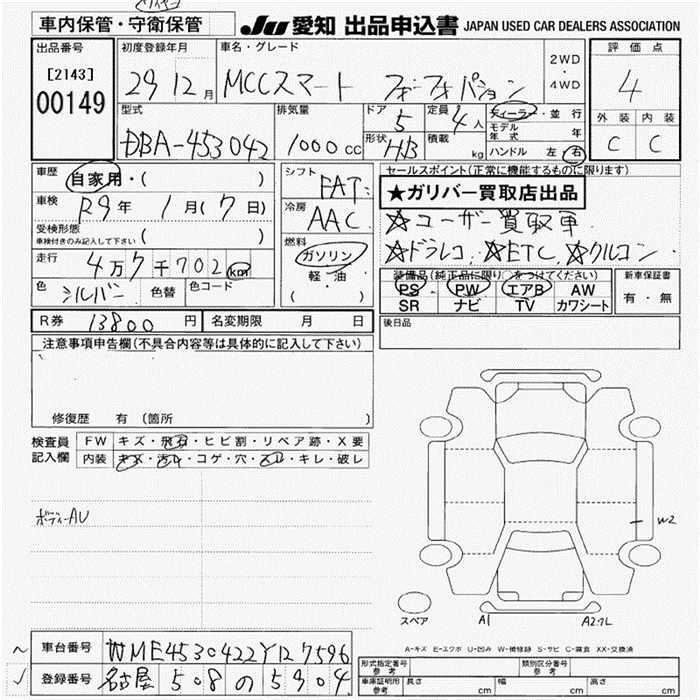 車内保管・守衛保管 JU 愛知 出品申込書 JAPAN USED CAR DEALERS ASSOCIATION
出品番号 初度登録年月 車名・グレード 評価点
[2143] 29 12月 MCCスマート フォーフォーパション 2WD・4WD 4
00149 型式 排気量 ドア 定員 ディーラー・並行 外装 内装
DBA-453042 1000cc 5 4人 モデル年式 年 C C
形状 HB 積載 kg ハンドル 左・右
車歴 自家用・( ) シフト FAT セールスポイント(正常に機能するものに限ります)
車検 R9年 1月(7日) 冷房 AAC ★ガリバー買取店出品
受検形態 ( ) ☆ユーザー買取車
車検付きのみ記入して下さい 燃料 ☆ドラレコ、☆ETC、☆クルコン
走行 4万7千702km ガソリン
軽・油
( )
色 シルバー 色替 色コード
装備品(純正品に限り○をつけてください) 新車保証書
PS PW エアB AW 有・無
SR ナビ TV カワシート
R券 13800円 名変期限 月 日 後日品
注意事項申告欄(不具合内容等は具体的に記入して下さい)
修復歴 有 (箇所 )
検査員 FW キズ・飛石・ヒビ割・リペア跡・X要
記入欄 内装 キズ・汚れ・コゲ・穴・スレ・キレ・破レ
ボディーAU
W2
スペア A1 A2.7L
A-キズ E-エクボ U-凹み W-補修跡 S-サビ C-腐食 XX-交換済
車台番号 WME4530422Y127596 形式指定番号 参考 類別区分番号 参考
登録番号 名古屋 508 の 5904 車庫証明用 参考 長さ cm 幅 cm 高さ cm